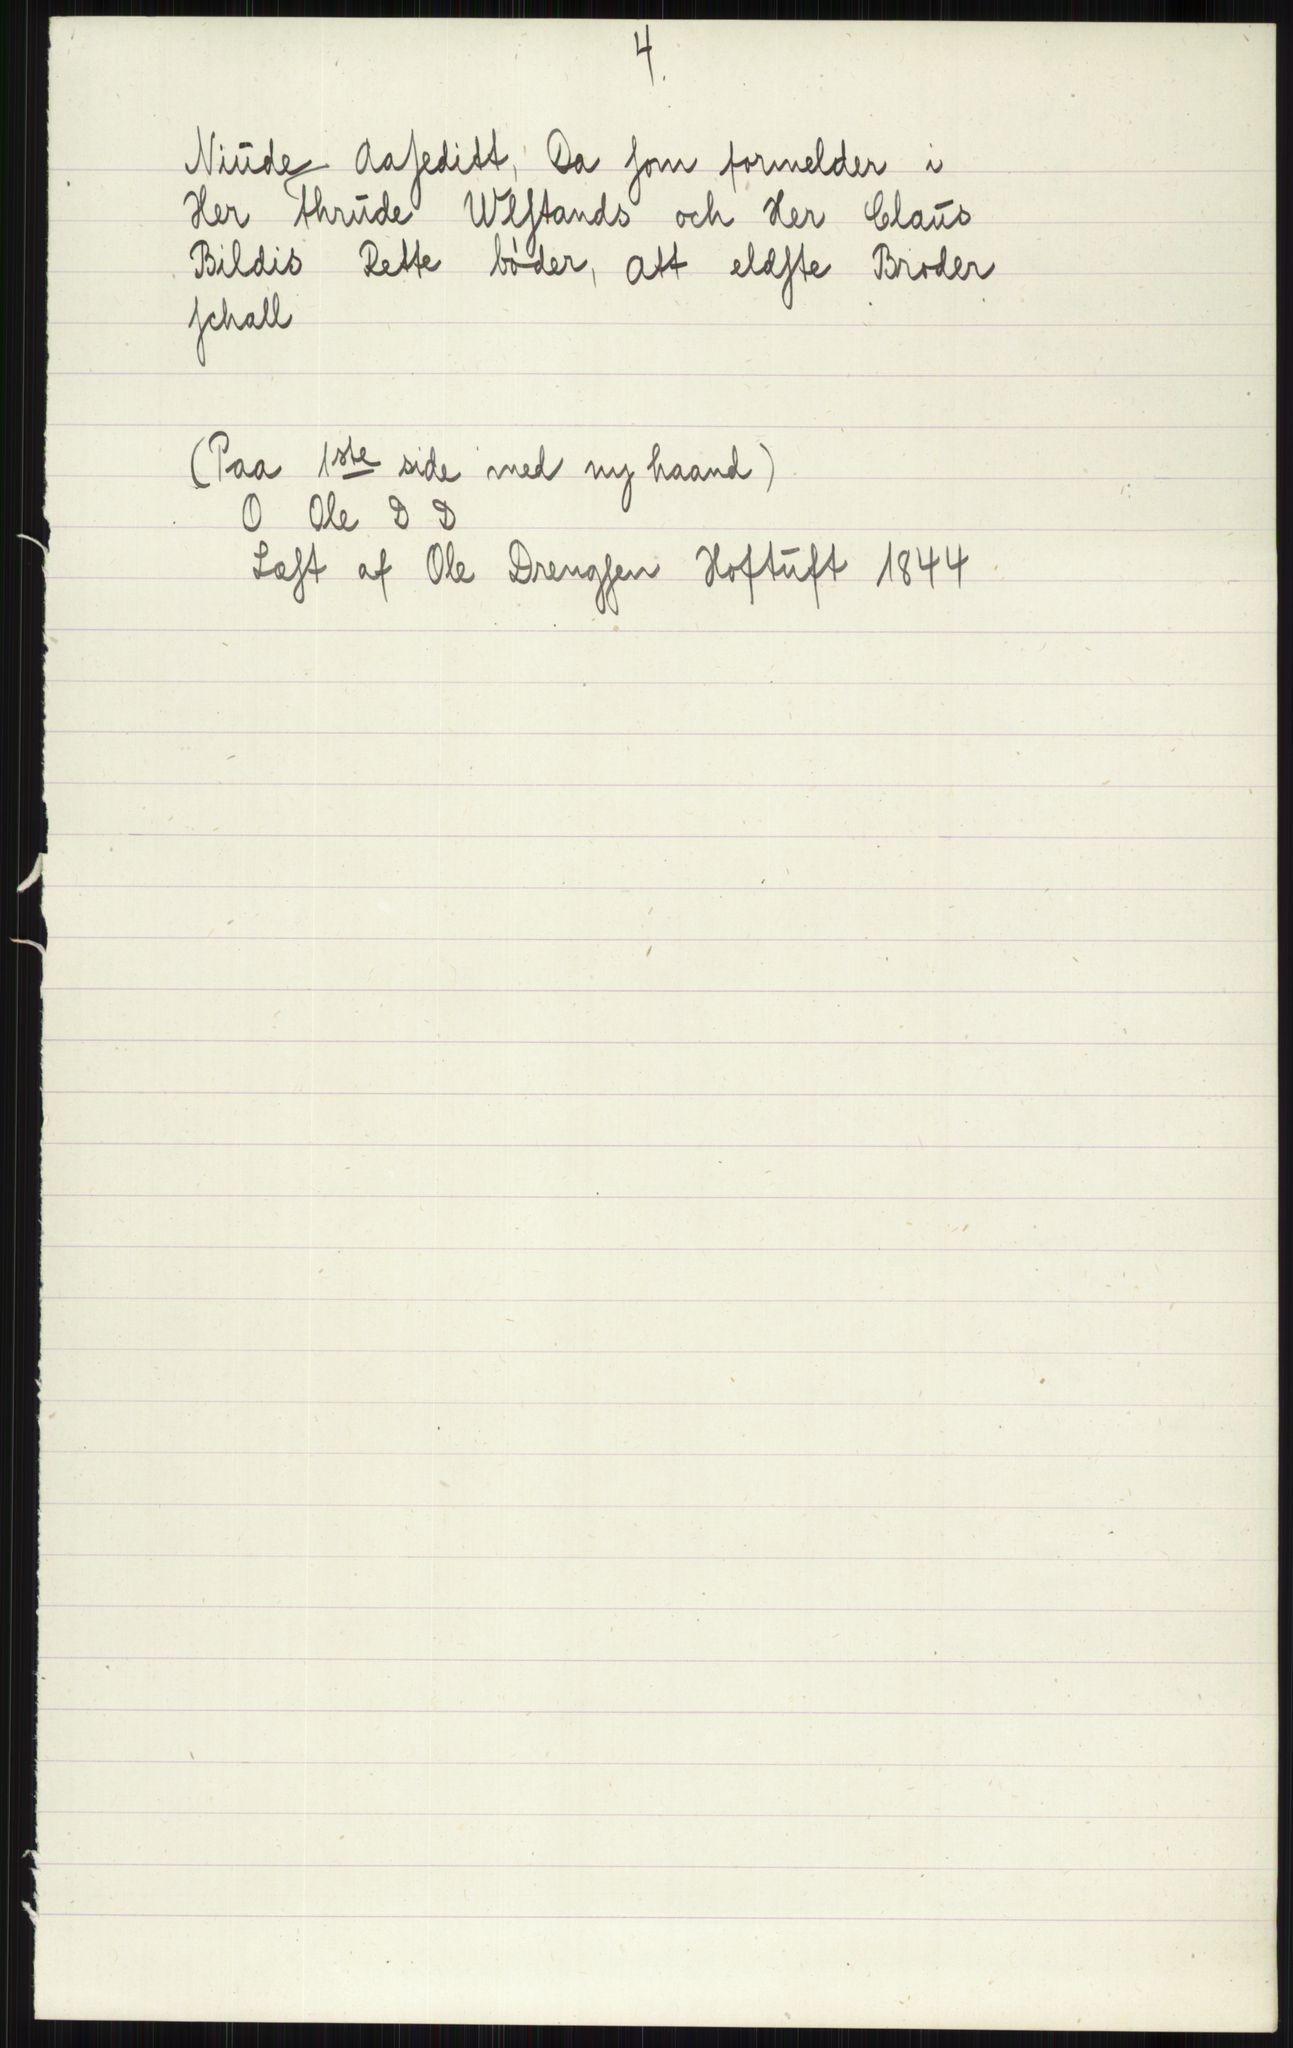 4.
Niūde Aaſeditt, Da ſom formelder i
Her thrūde Wlſtands och Her Claūs
Bildis Rette bøder, att eldſte Broder
ſchall
(Paa 1ste side med ny haand)
O Ole D D
Læſt af Ole Drengſen Hoftūft 1844